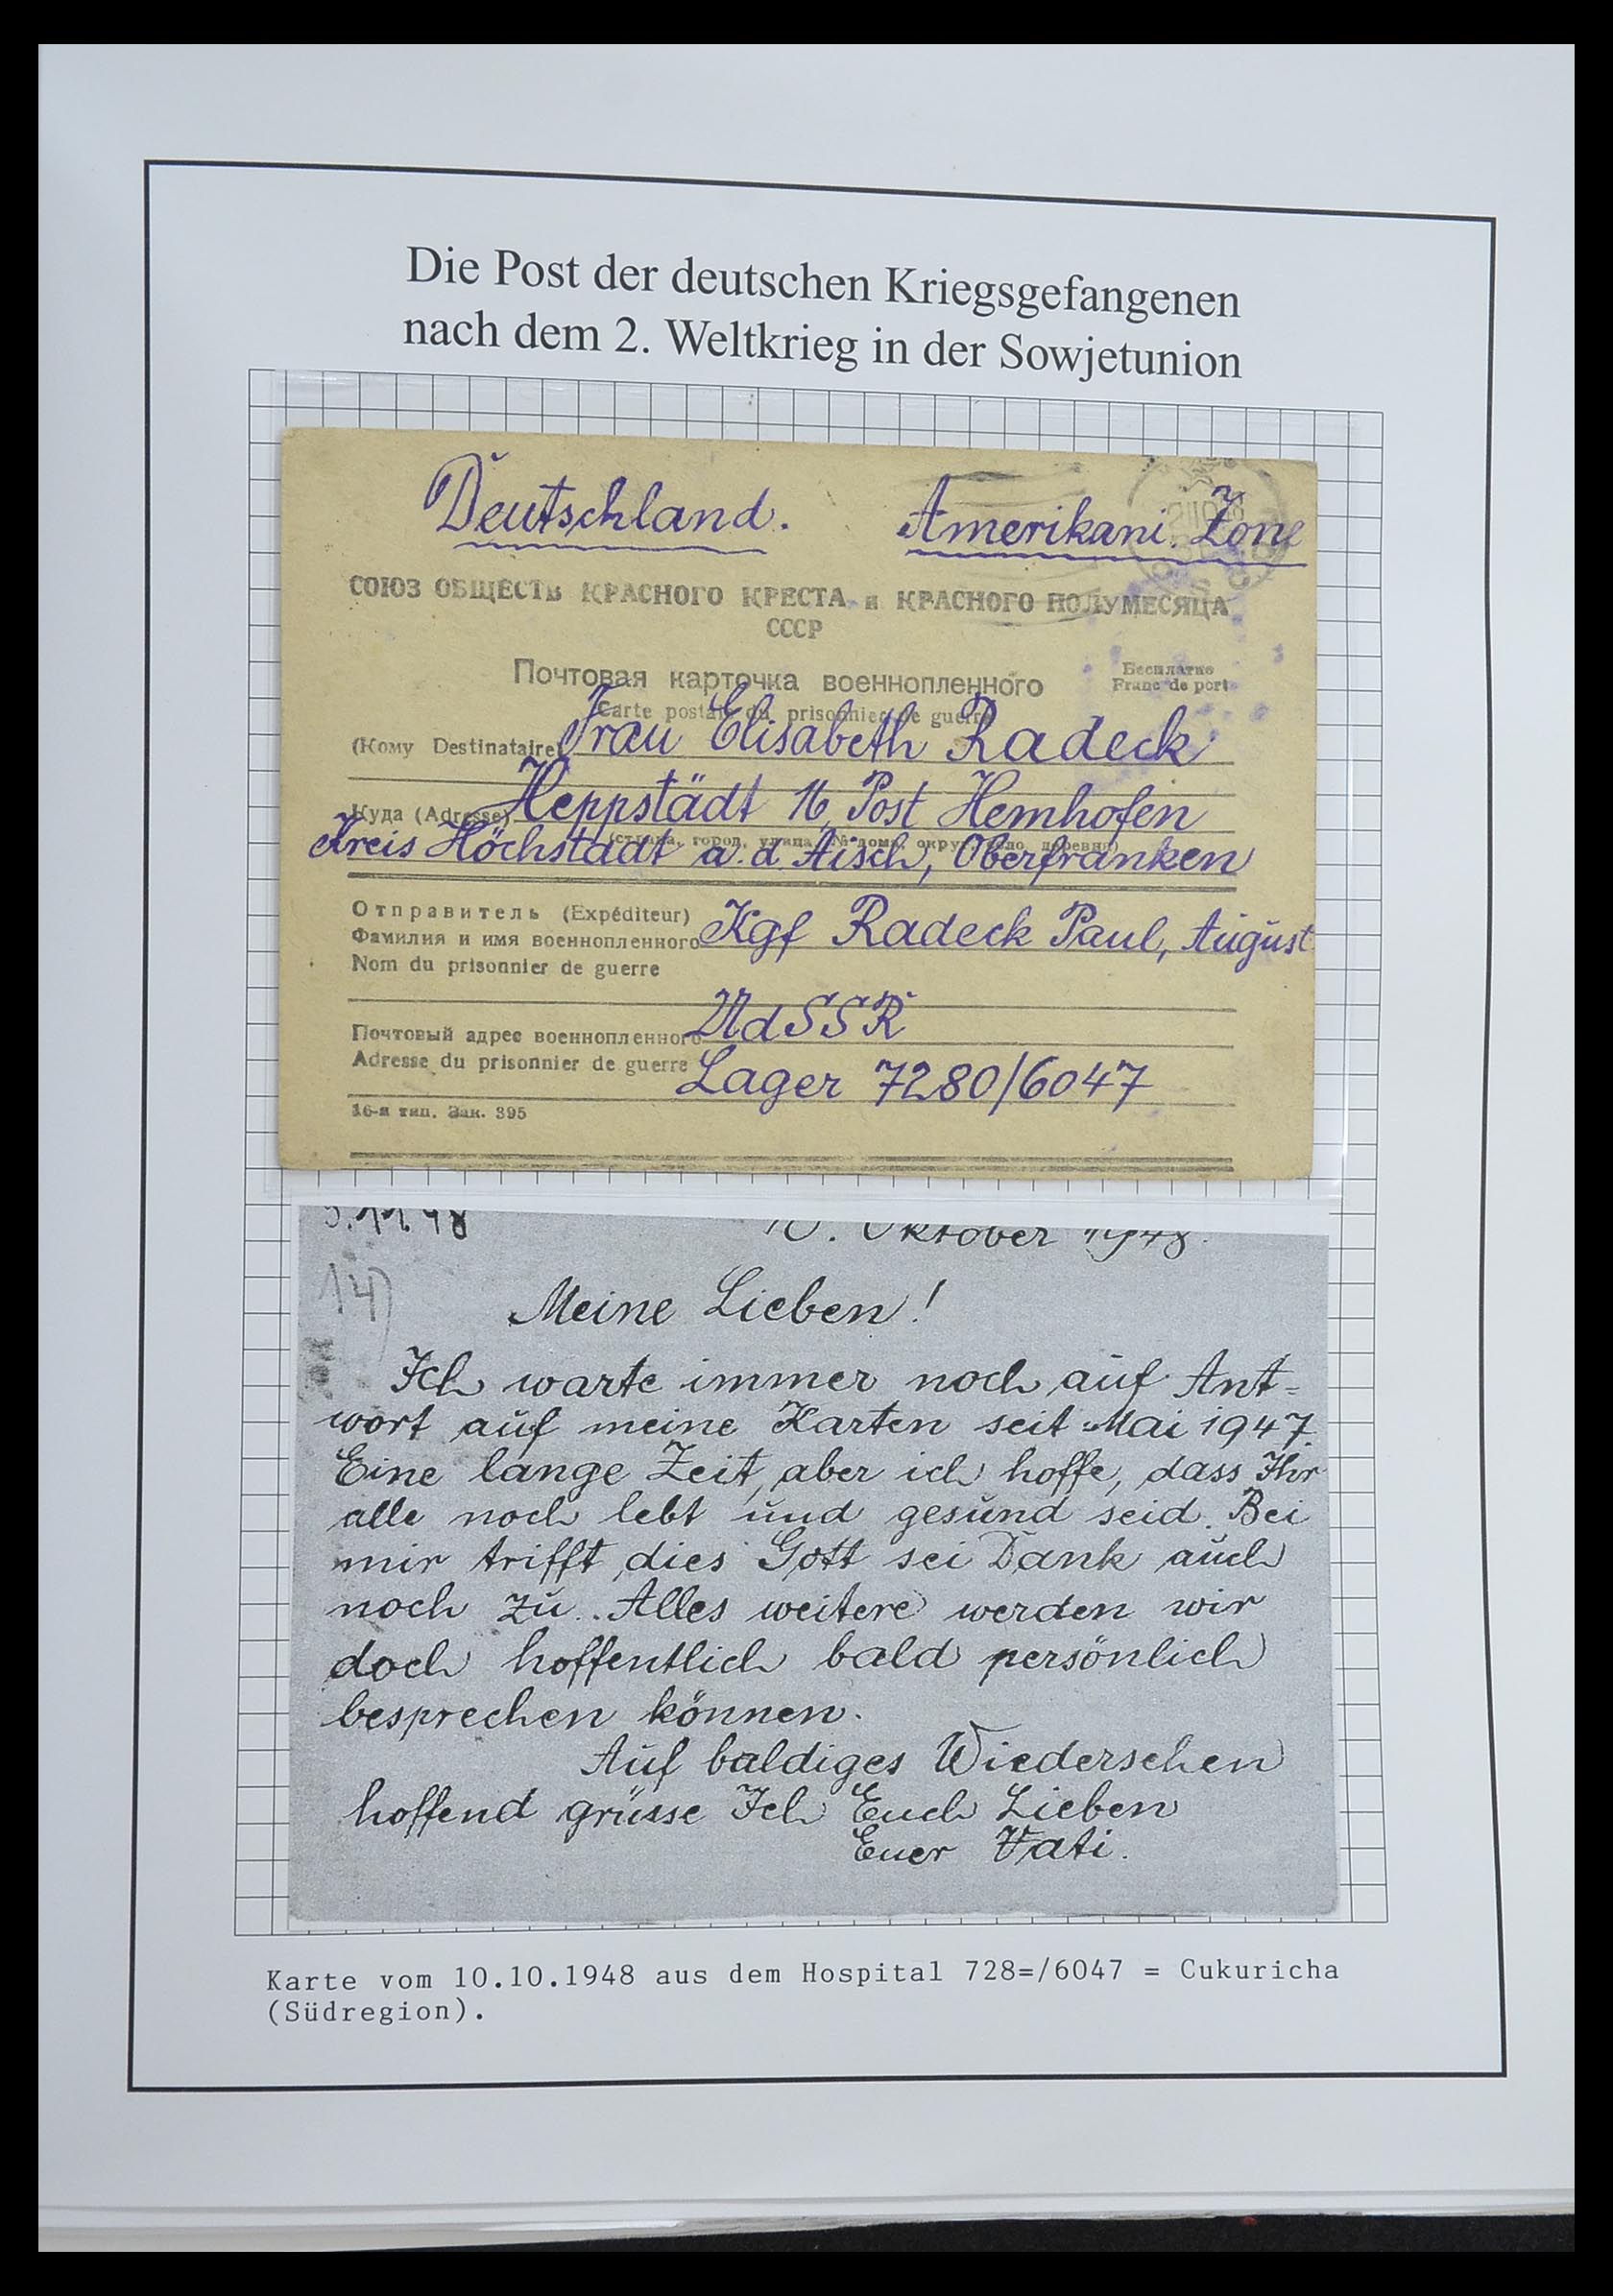 Die Post der deutschen Kriegsgefangenen
nach dem 2. Weltkrieg in der Sowjetunion
Deutschland. Amerikani. Zone
СОЮЗ ОБЩЕСТВ КРАСНОГО КРЕСТА и КРАСНОГО ПОЛУМЕСЯЦА
СССР
Почтовая карточка военнопленного
Бесплатно
Franc de port
Carte postale du prisonnier de guerre
(Кому Destinataire) Frau Elisabeth Radeck
Куда (Adresse) Heppstädt 16, Post Hemhofen
(страна, город, улица, № дома, округ, село, деревня)
Kreis Höchstadt a. d. Aisch, Oberfranken
Отправитель (Expéditeur)
Фамилия и имя военнопленного Kgf Radeck Paul, August
Nom du prisonnier de guerre
Почтовый адрес военнопленного UdSSR
Adresse du prisonnier de guerre Lager 7280/6047
16-я тип. Зак. 395
5.11.48 10. Oktober 1948.
14)
Meine Lieben!
Ich warte immer noch auf Ant=
wort auf meine Karten seit Mai 1947.
Eine lange Zeit, aber ich hoffe, dass Ihr
alle noch lebt und gesund seid. Bei
mir trifft dies Gott sei Dank auch
noch zu. Alles weitere werden wir
doch hoffentlich bald persönlich
besprechen können.
Auf baldiges Wiedersehen
hoffend grüsse Ich Euch Lieben
Euer Vati.
Karte vom 10.10.1948 aus dem Hospital 728=/6047 = Cukuricha
(Südregion).